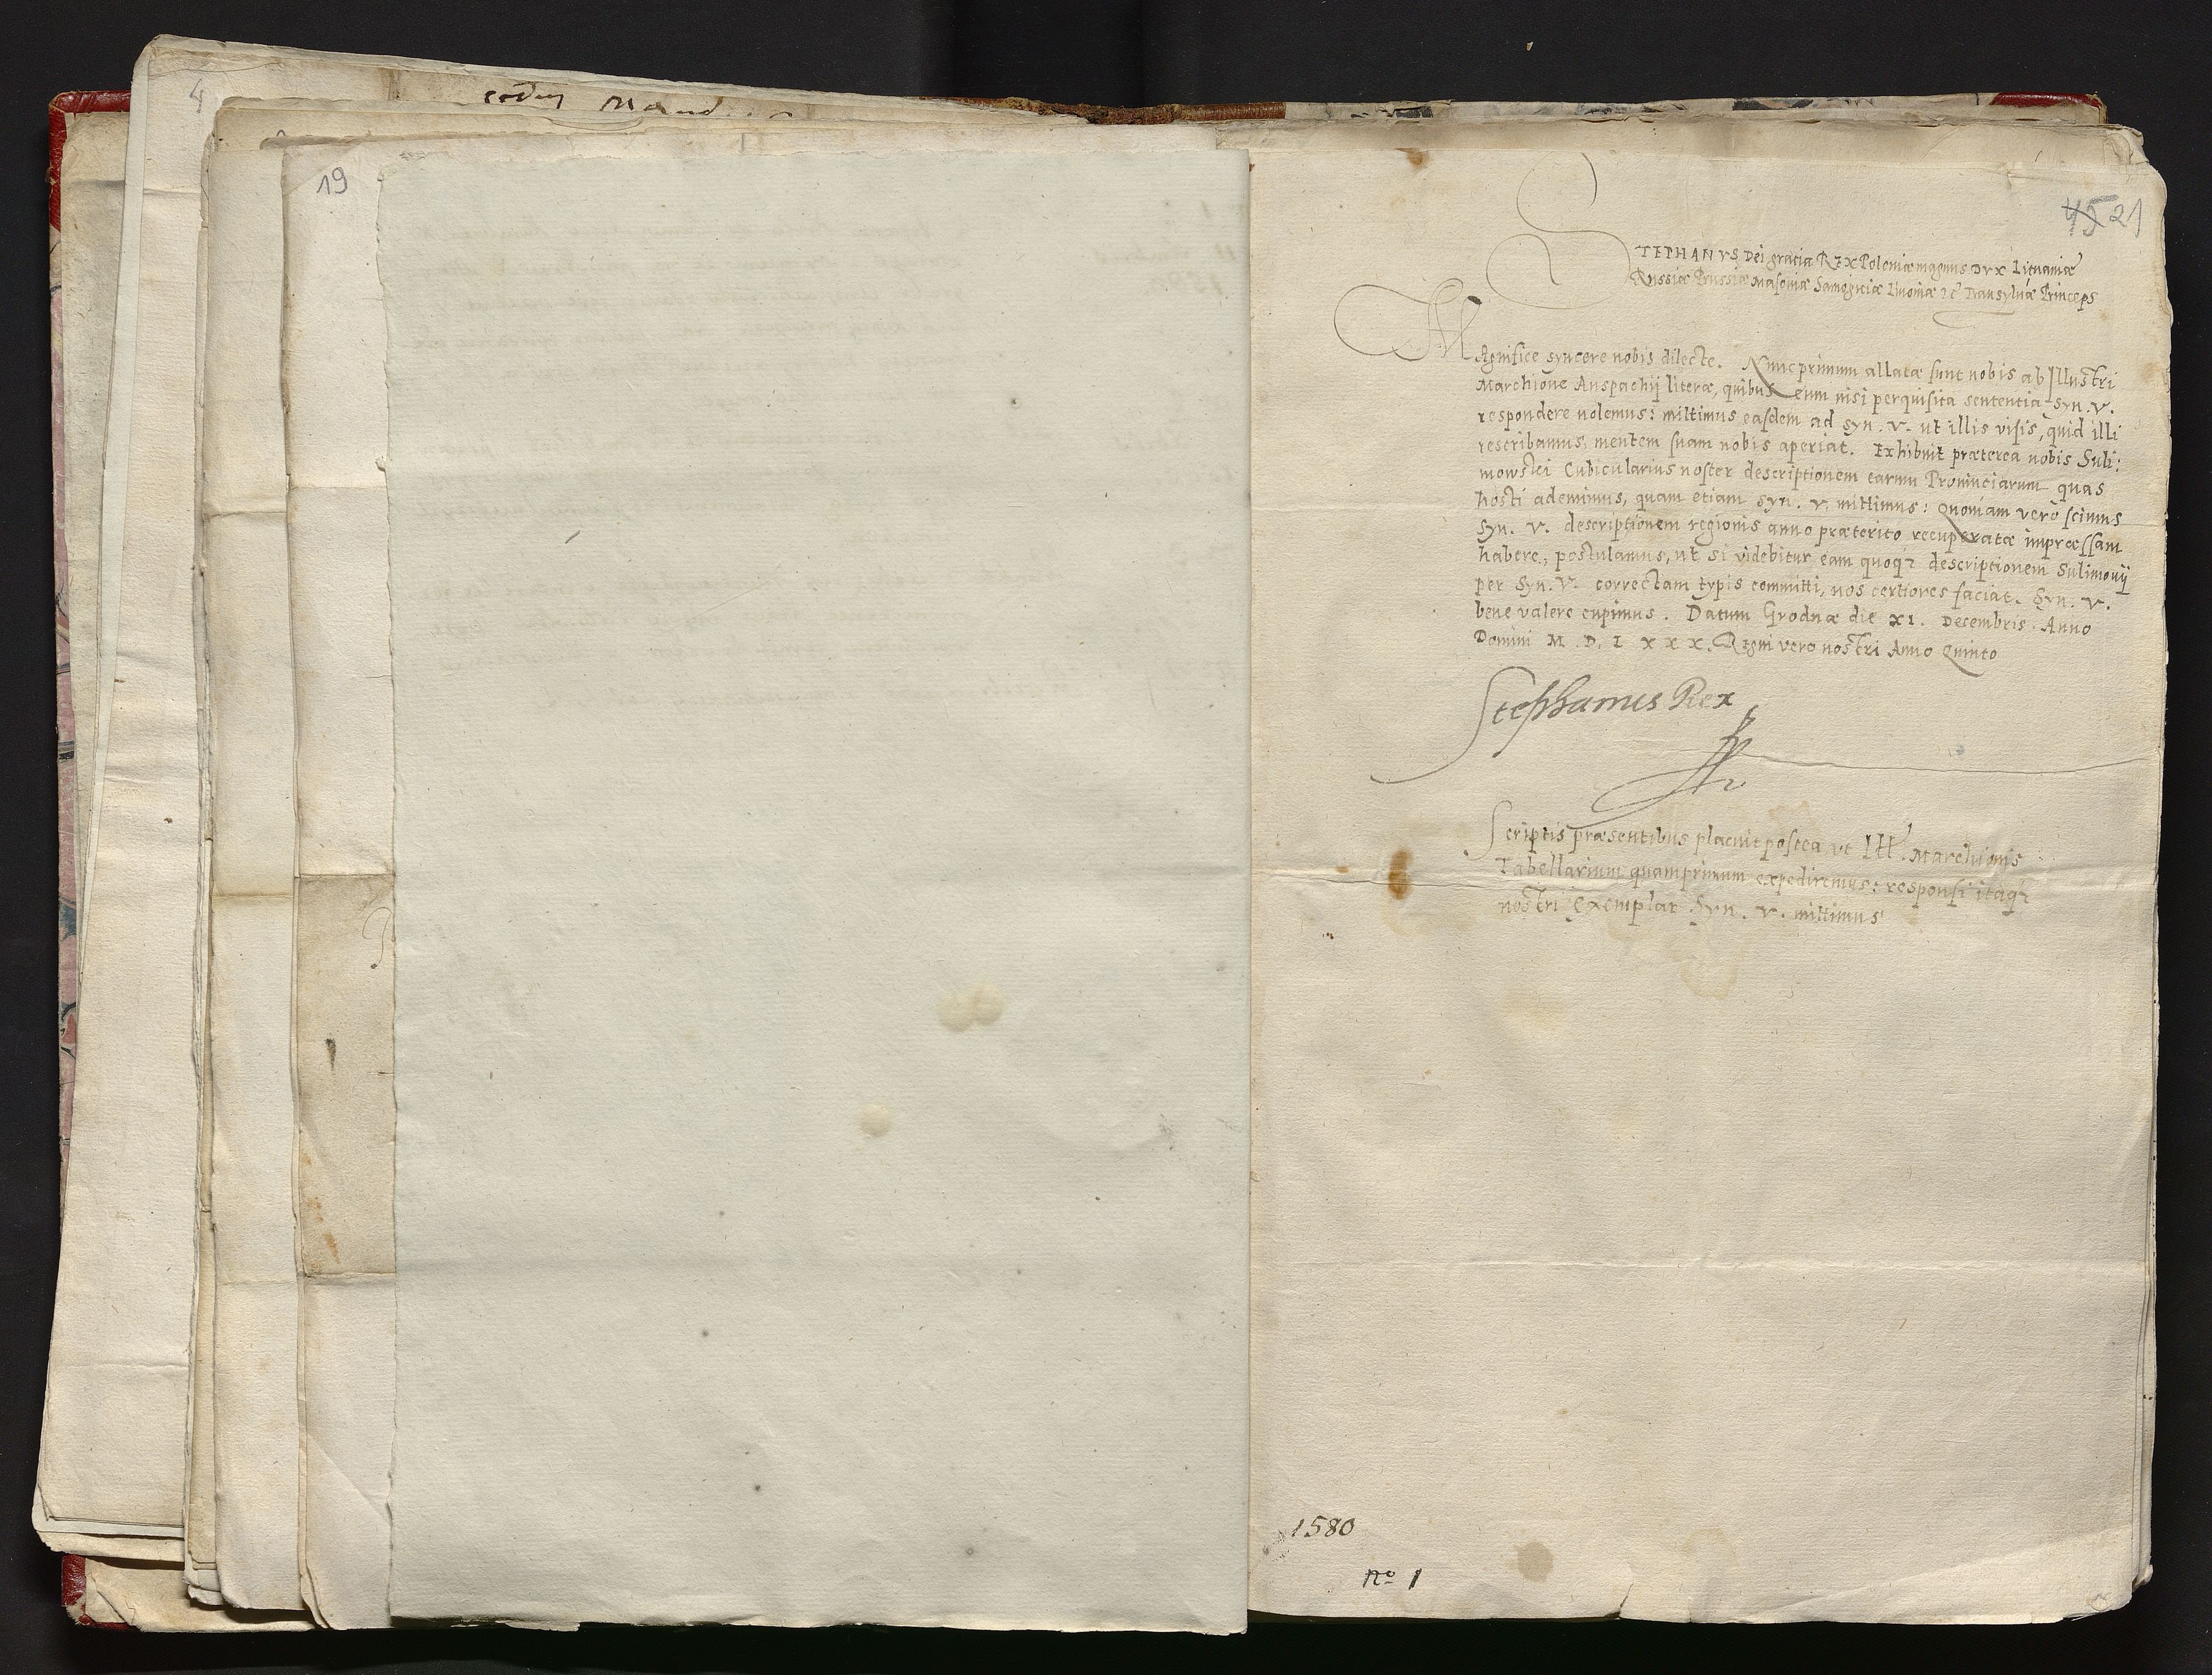 4
19
45 21
STEPHANVS Dei gratia REX Poloniæ magnus Dvx Lituaniæ
Russiæ Prussiæ Masoviæ Samogitiæ Livoniæ zc̃ Transylvāe Princeps
MAgnifice syncere nobis dilecte. Nunc primum allatæ sunt nobis ab Illustri
Marchione Anspachij literæ, quibus cum nisi perquisita sententia Syn. V.
respondere nolemus: mittimus easdem ad Syn. V. ut illis visis, quid illi
rescribamus, mentem suam nobis aperiat. Exhibuit præterea nobis Suli:
mowski Cubicularius noster descriptionem earum Provinciarum quas
hosti ademimus, quam etiam Syn. V. mittimus: quoniam vero scimus
Syn. V. descriptionem regionis anno præterito recuperatæ impræssam
habere, postulamus, ut si videbitur eam quoqz descriptionem Sulimovij
per Syn. V. correctam typis committi, nos certiores faciat. Syn. V.
bene valere cupimus. Datum Grodnæ die XI. Decembris. Anno
Domini M. D. L x x x. Regni vero nostri Anno Quinto
Stephanus Rex
Scriptis præsentibus placuit postea ut Ill. Marchionis
Tabellarium quamprimum expediremus: responsi itaqz
nostri Exemplar Syn. V. mittimus
1580
No 1